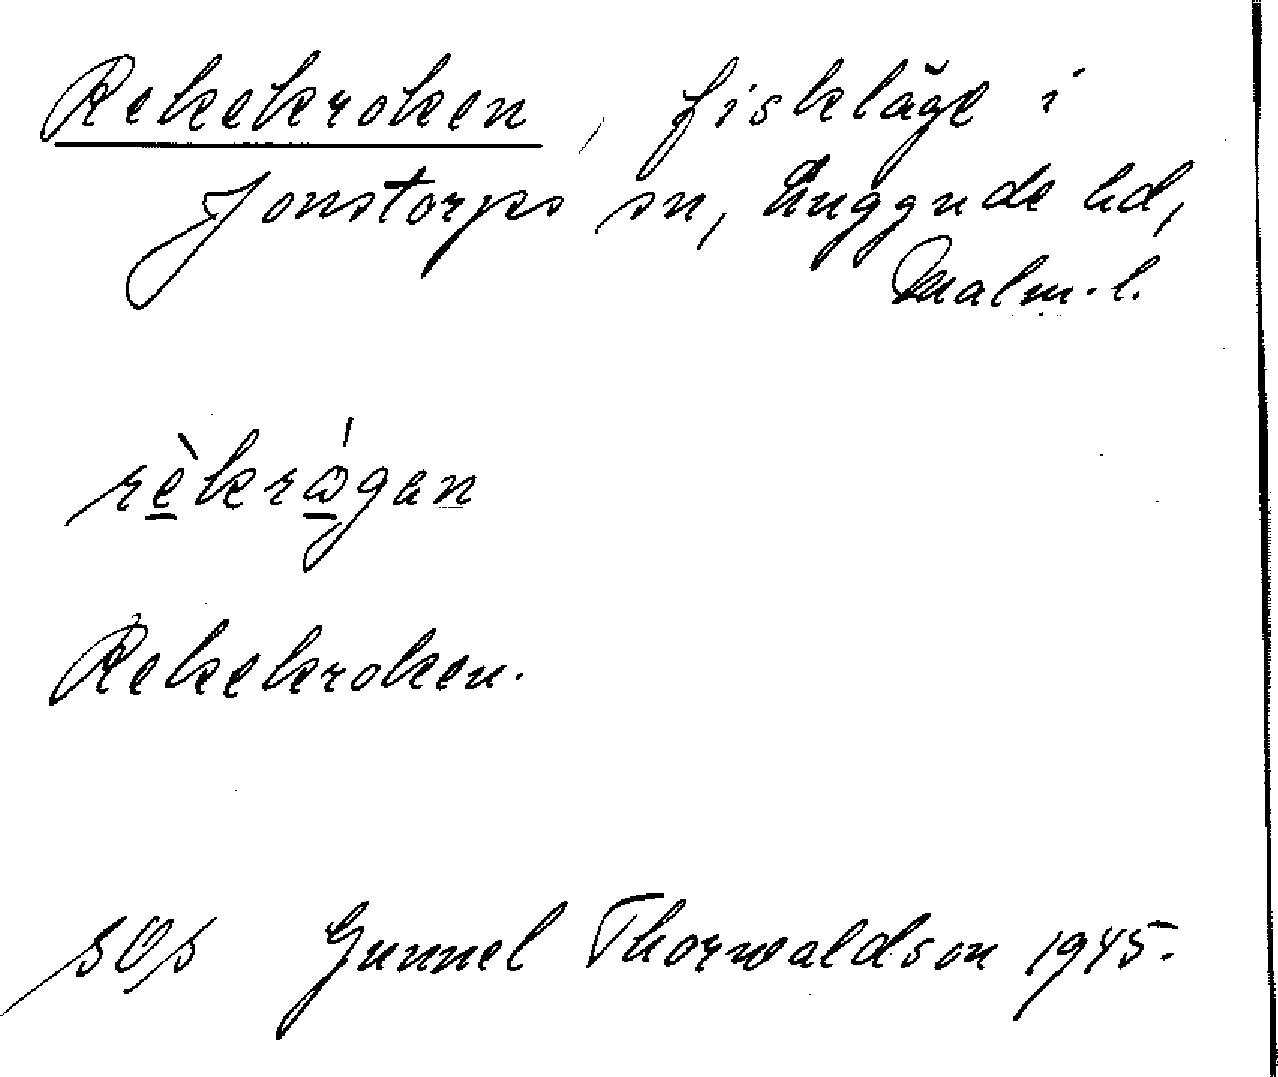 Rekekroken, fiskläge i
Jonstorps sn, Luggude hd,
Malm. l.
rèkrågan
Rekekroken.
sOs Gunnel Thorwaldson 1945.